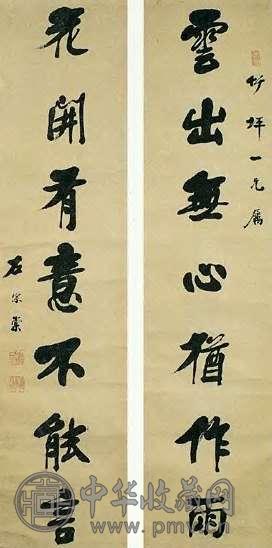 竹坪一兄屬
雲出無心猶作雨
花開有意不能言
左宗棠
中华收藏网